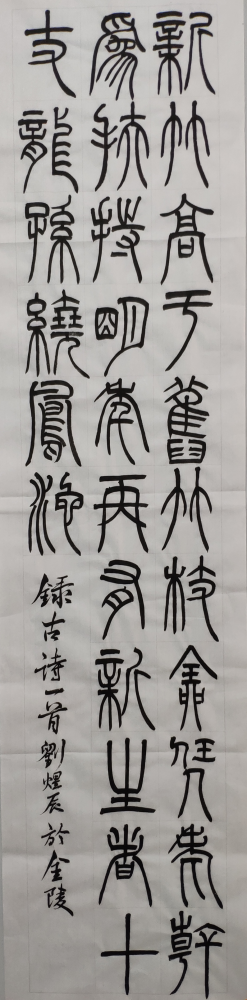 新竹高于舊竹枝全凭老幹
為扶持明年再有新生者十
丈龍孫繞鳳池
錄古詩一首劉辰於金陵